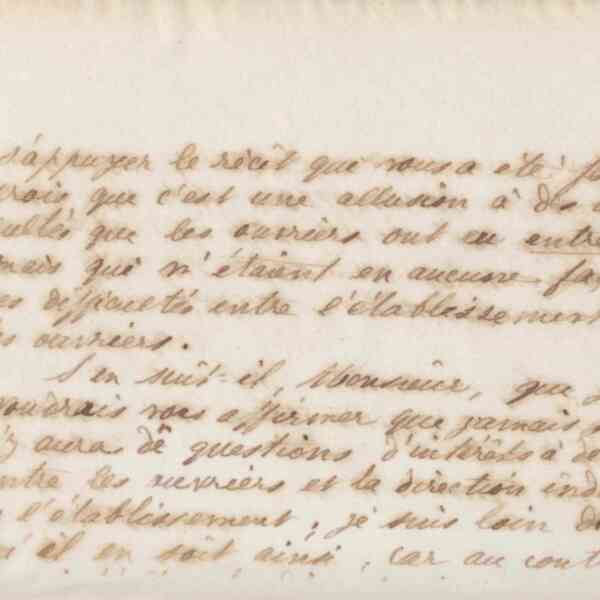 s'appuyer le récit que vous a été
crois que c'est une allusion à des
cultés que les ouvriers ont eu entre
mais qui n'étaient en aucune fa
es difficultés entre l'établissement
s ouvriers.
S'en suit-il, Monsieur, que
voudrais vous affirmer que jamais
y aura de questions d'intérêts à dé
entre les ouvriers et la direction ind
l'établissement, je suis loin d
qu'il en soit ainsi, car au cont